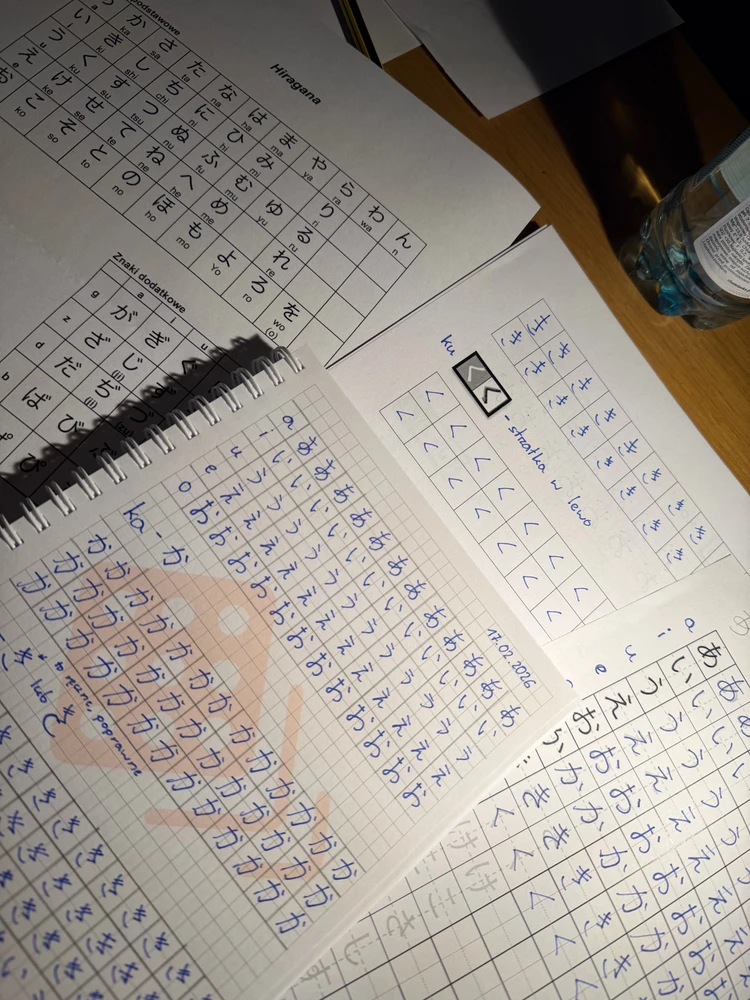 Hiragana
podstawowe
か さ た な は ま や ら わ ん
ka sa ta na ha ma ya ra wa n
い き し ち に ひ み り
ki shi chi ni hi mi ri
う く す つ ぬ ふ む ゆ る
ku su tsu nu fu mu yu ru
え け せ て ね へ め れ
ke se te ne he me re
お こ そ と の ほ も よ ろ を
ko so to no ho mo Yo ro wo
(o)
Znaki dodatkowe
a i u
g が ぎ
z ざ じ ず
d だ ぢ づ
b ば び
ぴ
き き き き き き き き
き き き き き き き
ku く く - strzałka w lewo
く く く く く く く
く く く く く く く
17.02.2026
a あ あ あ あ あ あ あ あ あ あ
i い い い い い い い い い い い
u う う う う う う う う う う
e え え え え え え え え え え
o お お お お お お お お お お お
ka - か
か か か か か か か か か か
か か か か か か か か か か
か か か か か か か か か か
き lub き
to ręcznie, poprawne
き き き き き
き き き き き
き き き き き
a あ あ あ
i い い い い
u う う う う え
e え え え え え
お お お お お お
か か か か か か
き き き き き
く く く く
け け
こ こ
さ さ
し し
す